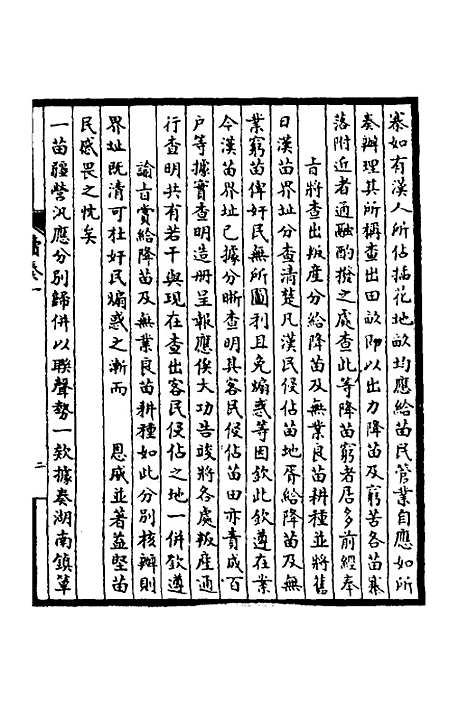 寨如有漢人所佔插花地畝均應給苗民管業自應如所
奏辦理其所稱查出田畝即以出力降苗及窮苦各苗寨
落附近者通融酌撥之處查此等降苗窮者居多前經奉
旨將查出叛產分給降苗及無業良苗耕種並將舊
日漢苗界址分查清楚凡漢民侵佔苗地胥給降苗及無
業窮苗俾奸民無所圖利且免煽惑等因欽此欽遵在案
今漢苗界址已據分晰查明其客民侵佔苗田亦責成百
户等據實查明造册呈報應俟大功告竣將各處叛產通
行查明共有若干與現在查出客民侵佔之地一併欽遵
諭旨賞給降苗及無業良苗耕種如此分別核辦則
界址既清可杜奸民煽惑之漸而 恩威並著益堅苗
民感畏之忱矣
一苗疆營汛應分別歸併以聯聲勢一欵據奏湖南鎮筸
二